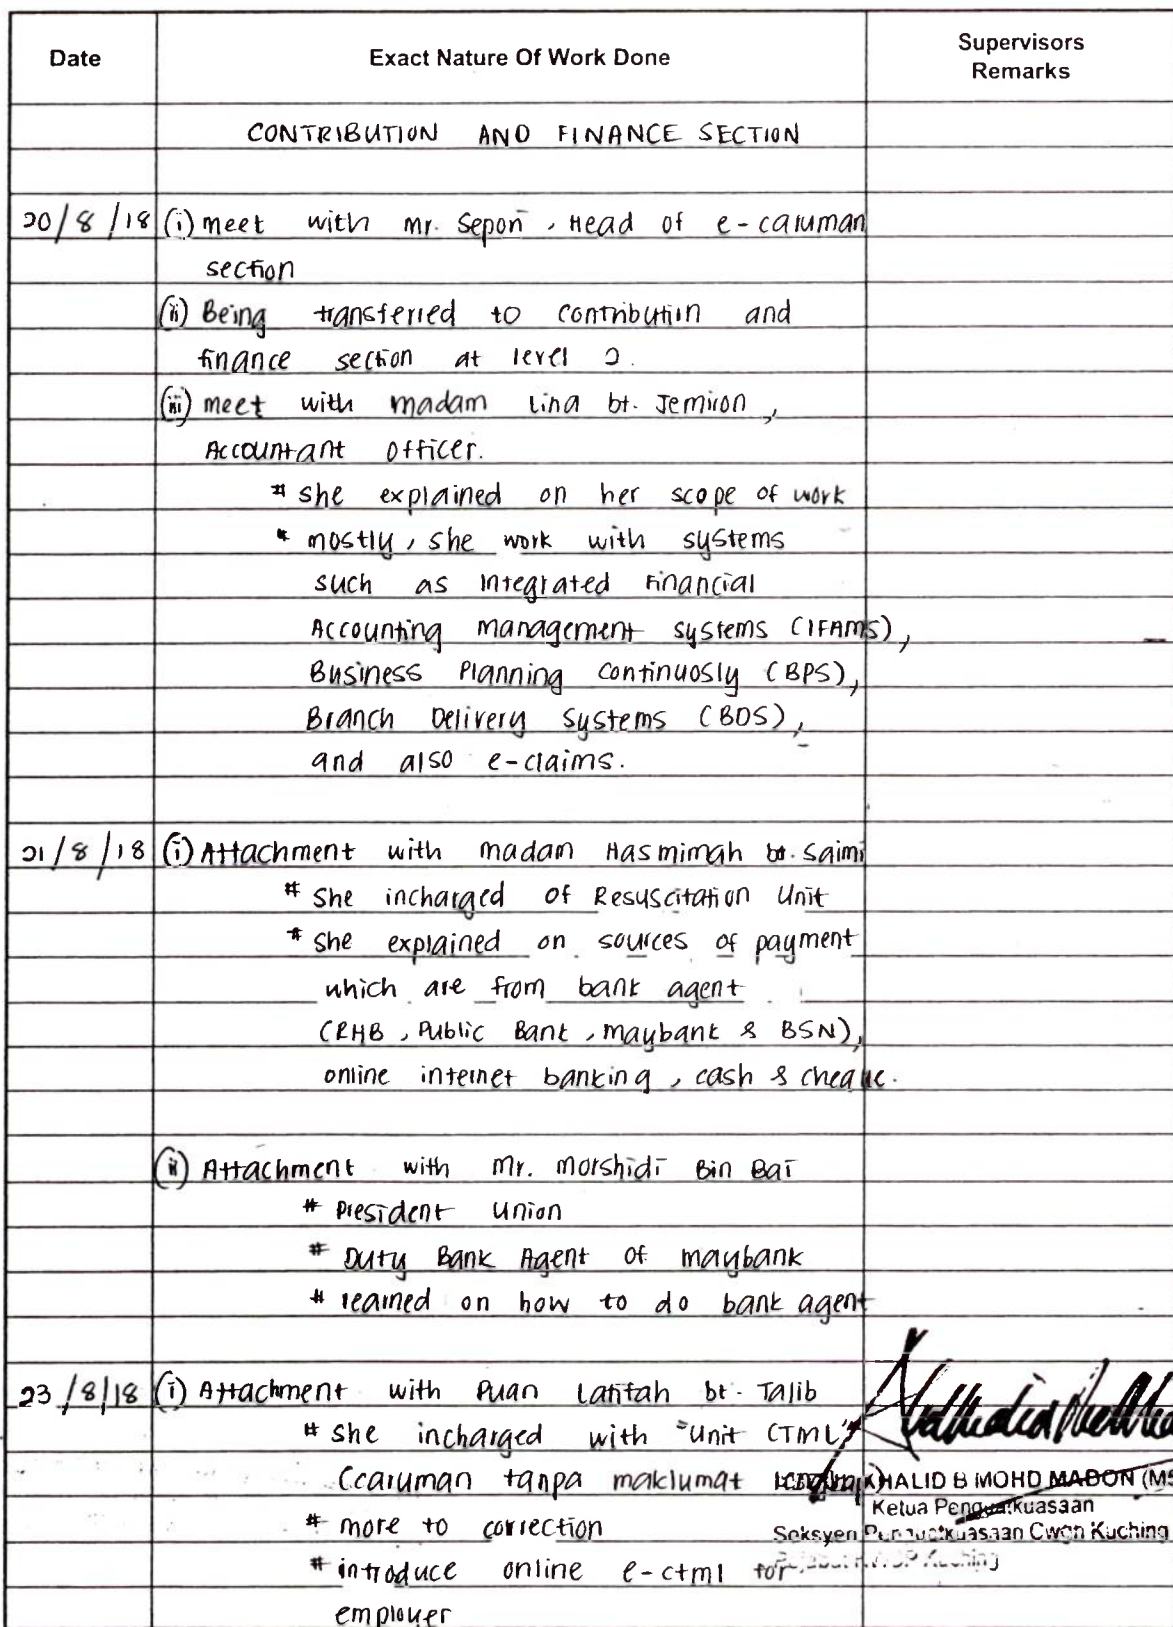 Date Exact Nature Of Work Done Supervisors
Remarks
CONTRIBUTION AND FINANCE SECTION
20/8/18 (i) meet with Mr. Sepon, Head of e-caruman
section
(ii) Being transferred to contribution and
finance section at level 2.
(iii) meet with madam Lina bt. Jemiron,
Accountant Officer.
* she explained on her scope of work
* mostly, she work with systems
such as Integrated Financial
Accounting management systems (IFAMS),
Business Planning Continuosly (BPS),
Branch Delivery Systems (BDS),
and also e-claims.
21/8/18 (i) Attachment with madan Hasmimah bt. Saimi
* She incharged of Resuscitation Unit
* she explained on sources of payment
which are from bank agent
(RHB, Public Bank, maybank & BSN),
online internet banking, cash & cheque.
(ii) Attachment with Mr. Morshidi Bin Bai
* President Union
* Duty Bank Agent of maybank
* learned on how to do bank agent
23/8/18 (i) Attachment with Puan Latifah bt. Talib
* she incharged with "Unit CTML"
(caruman tanpa maklumat
KHALID B MOHD MADON (MS
* more to correction
Ketua Penguatkuasaan
Seksyen Penguatkuasaan Cwgn Kuching
* introduce online e-ctml for
KWSP Kuching
employer